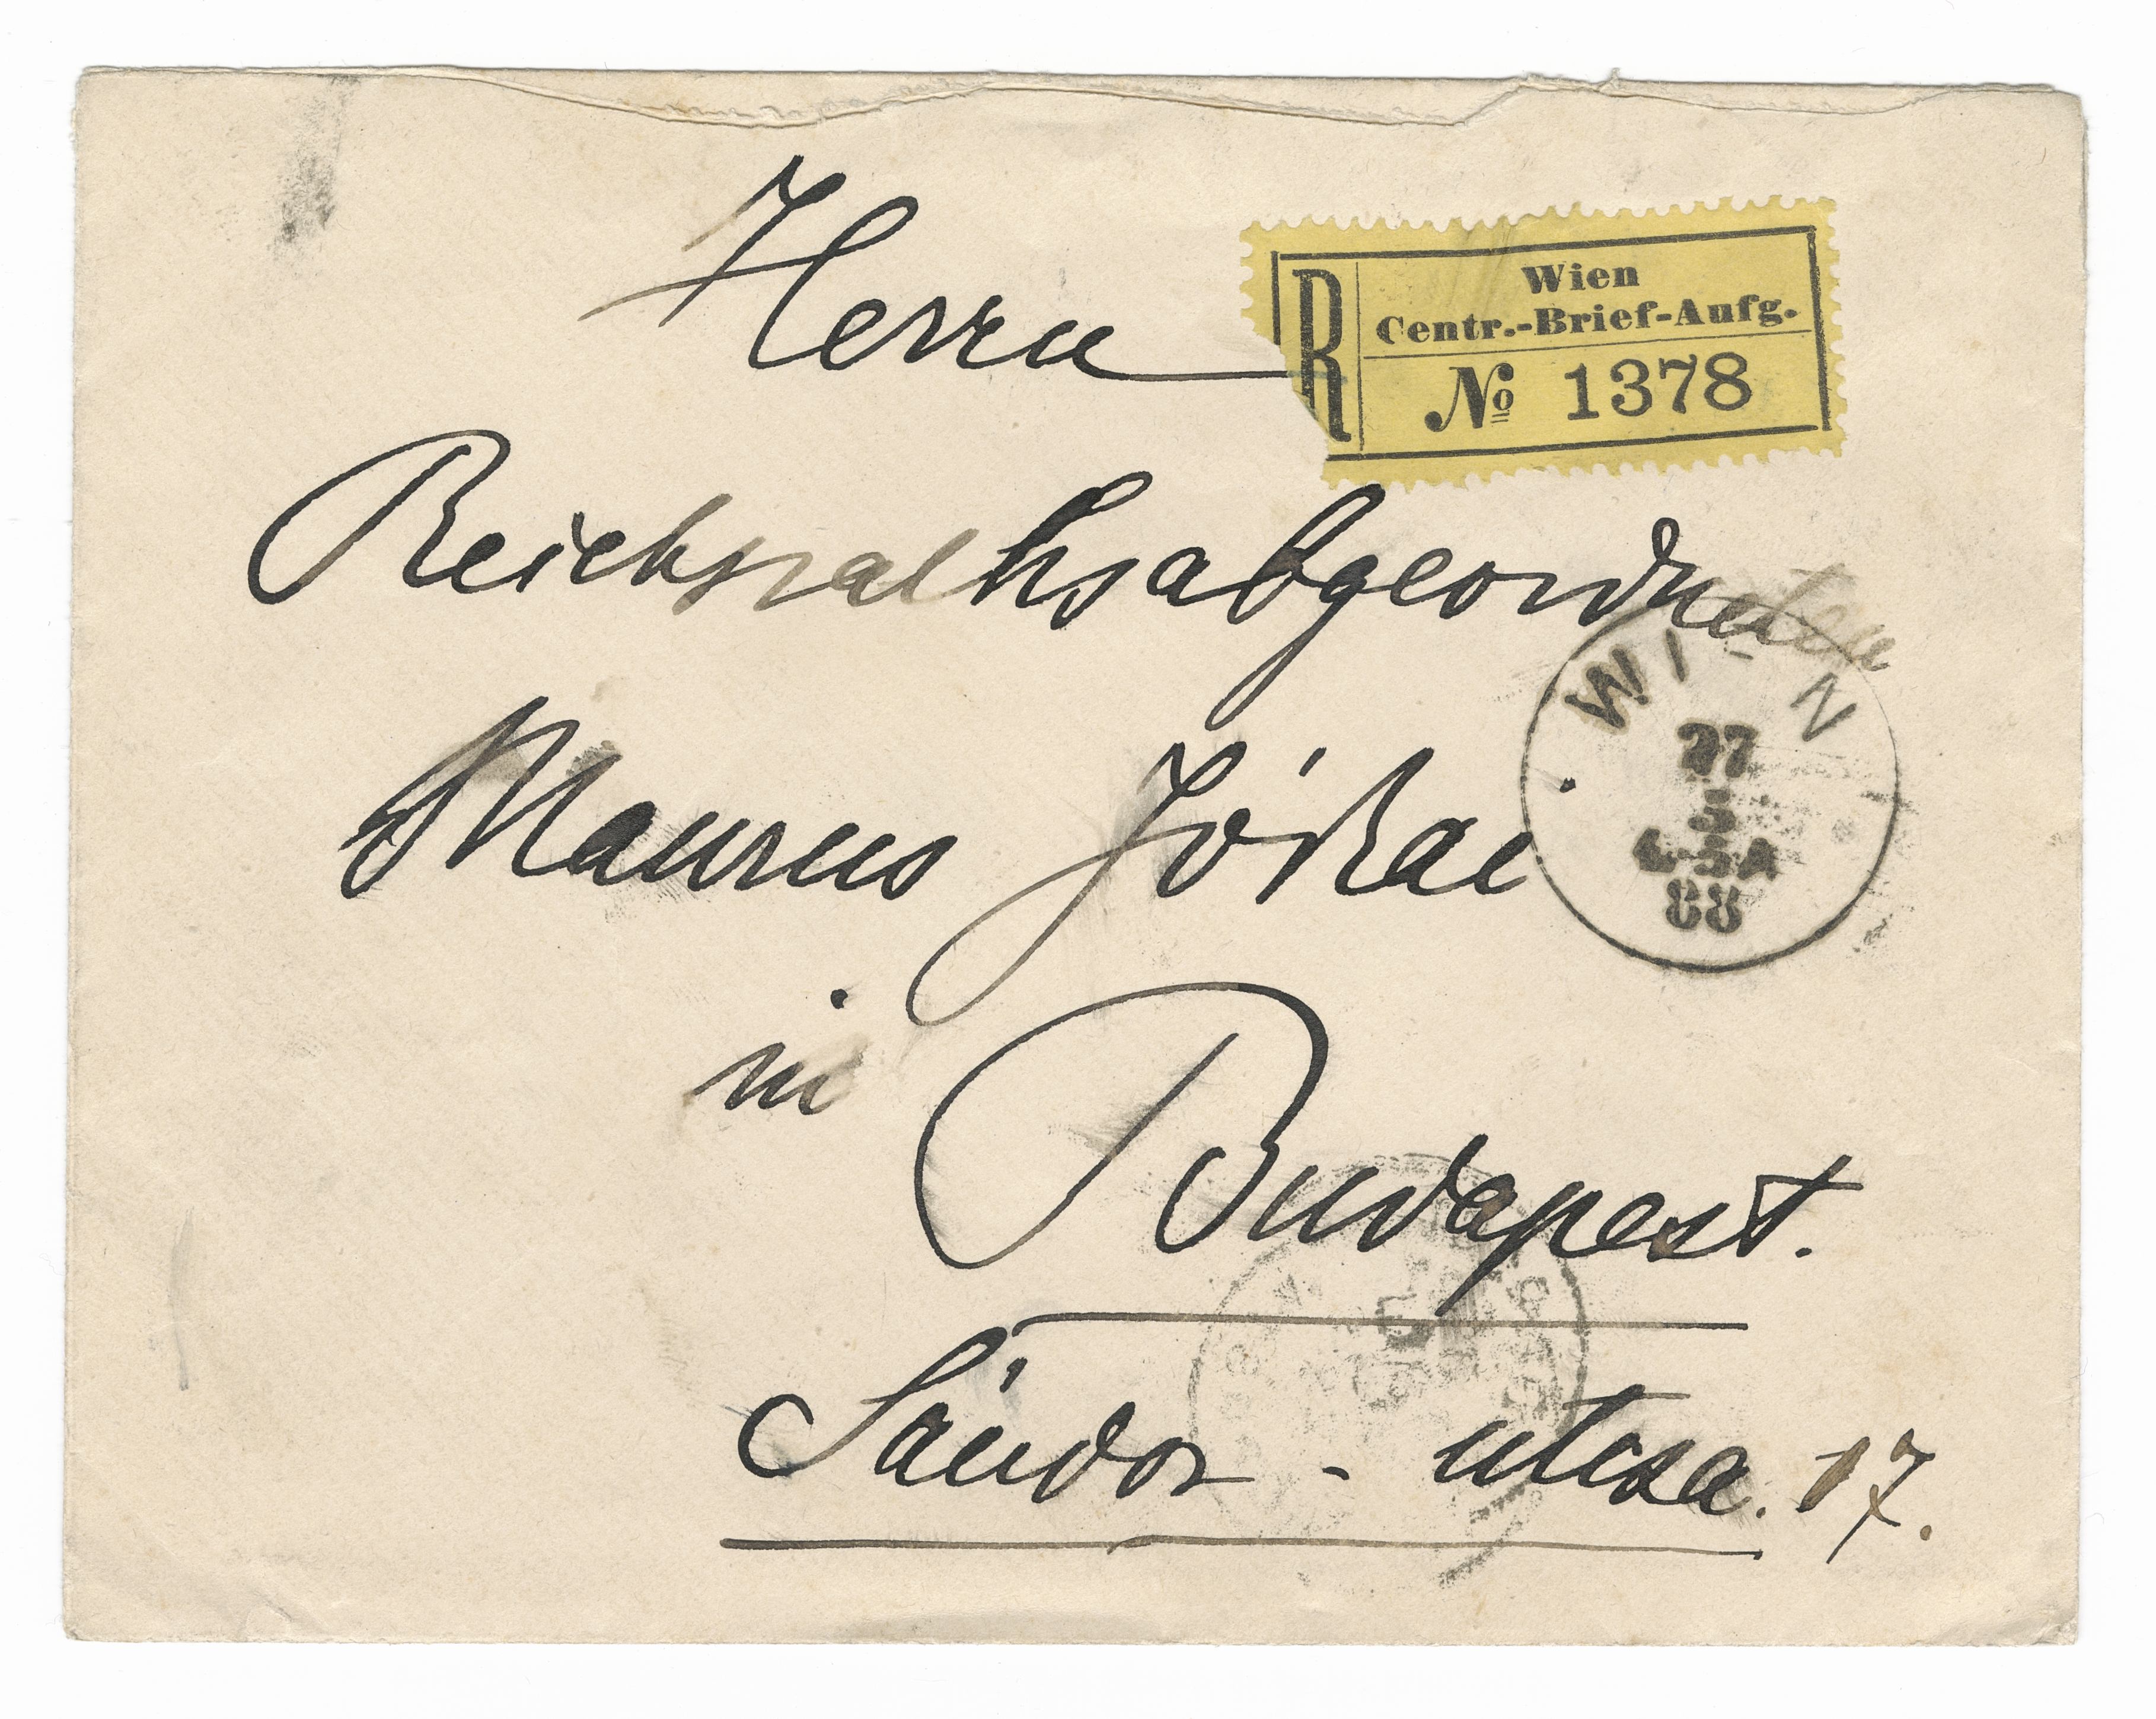 Herrn
R Wien
Centr.-Brief-Aufg.
No 1378
Reichsrathsabgeordneten
Maurus Jókai
WIEN
27
5
4-5A
88
in Budapest.
Sándor-utcza. 17.